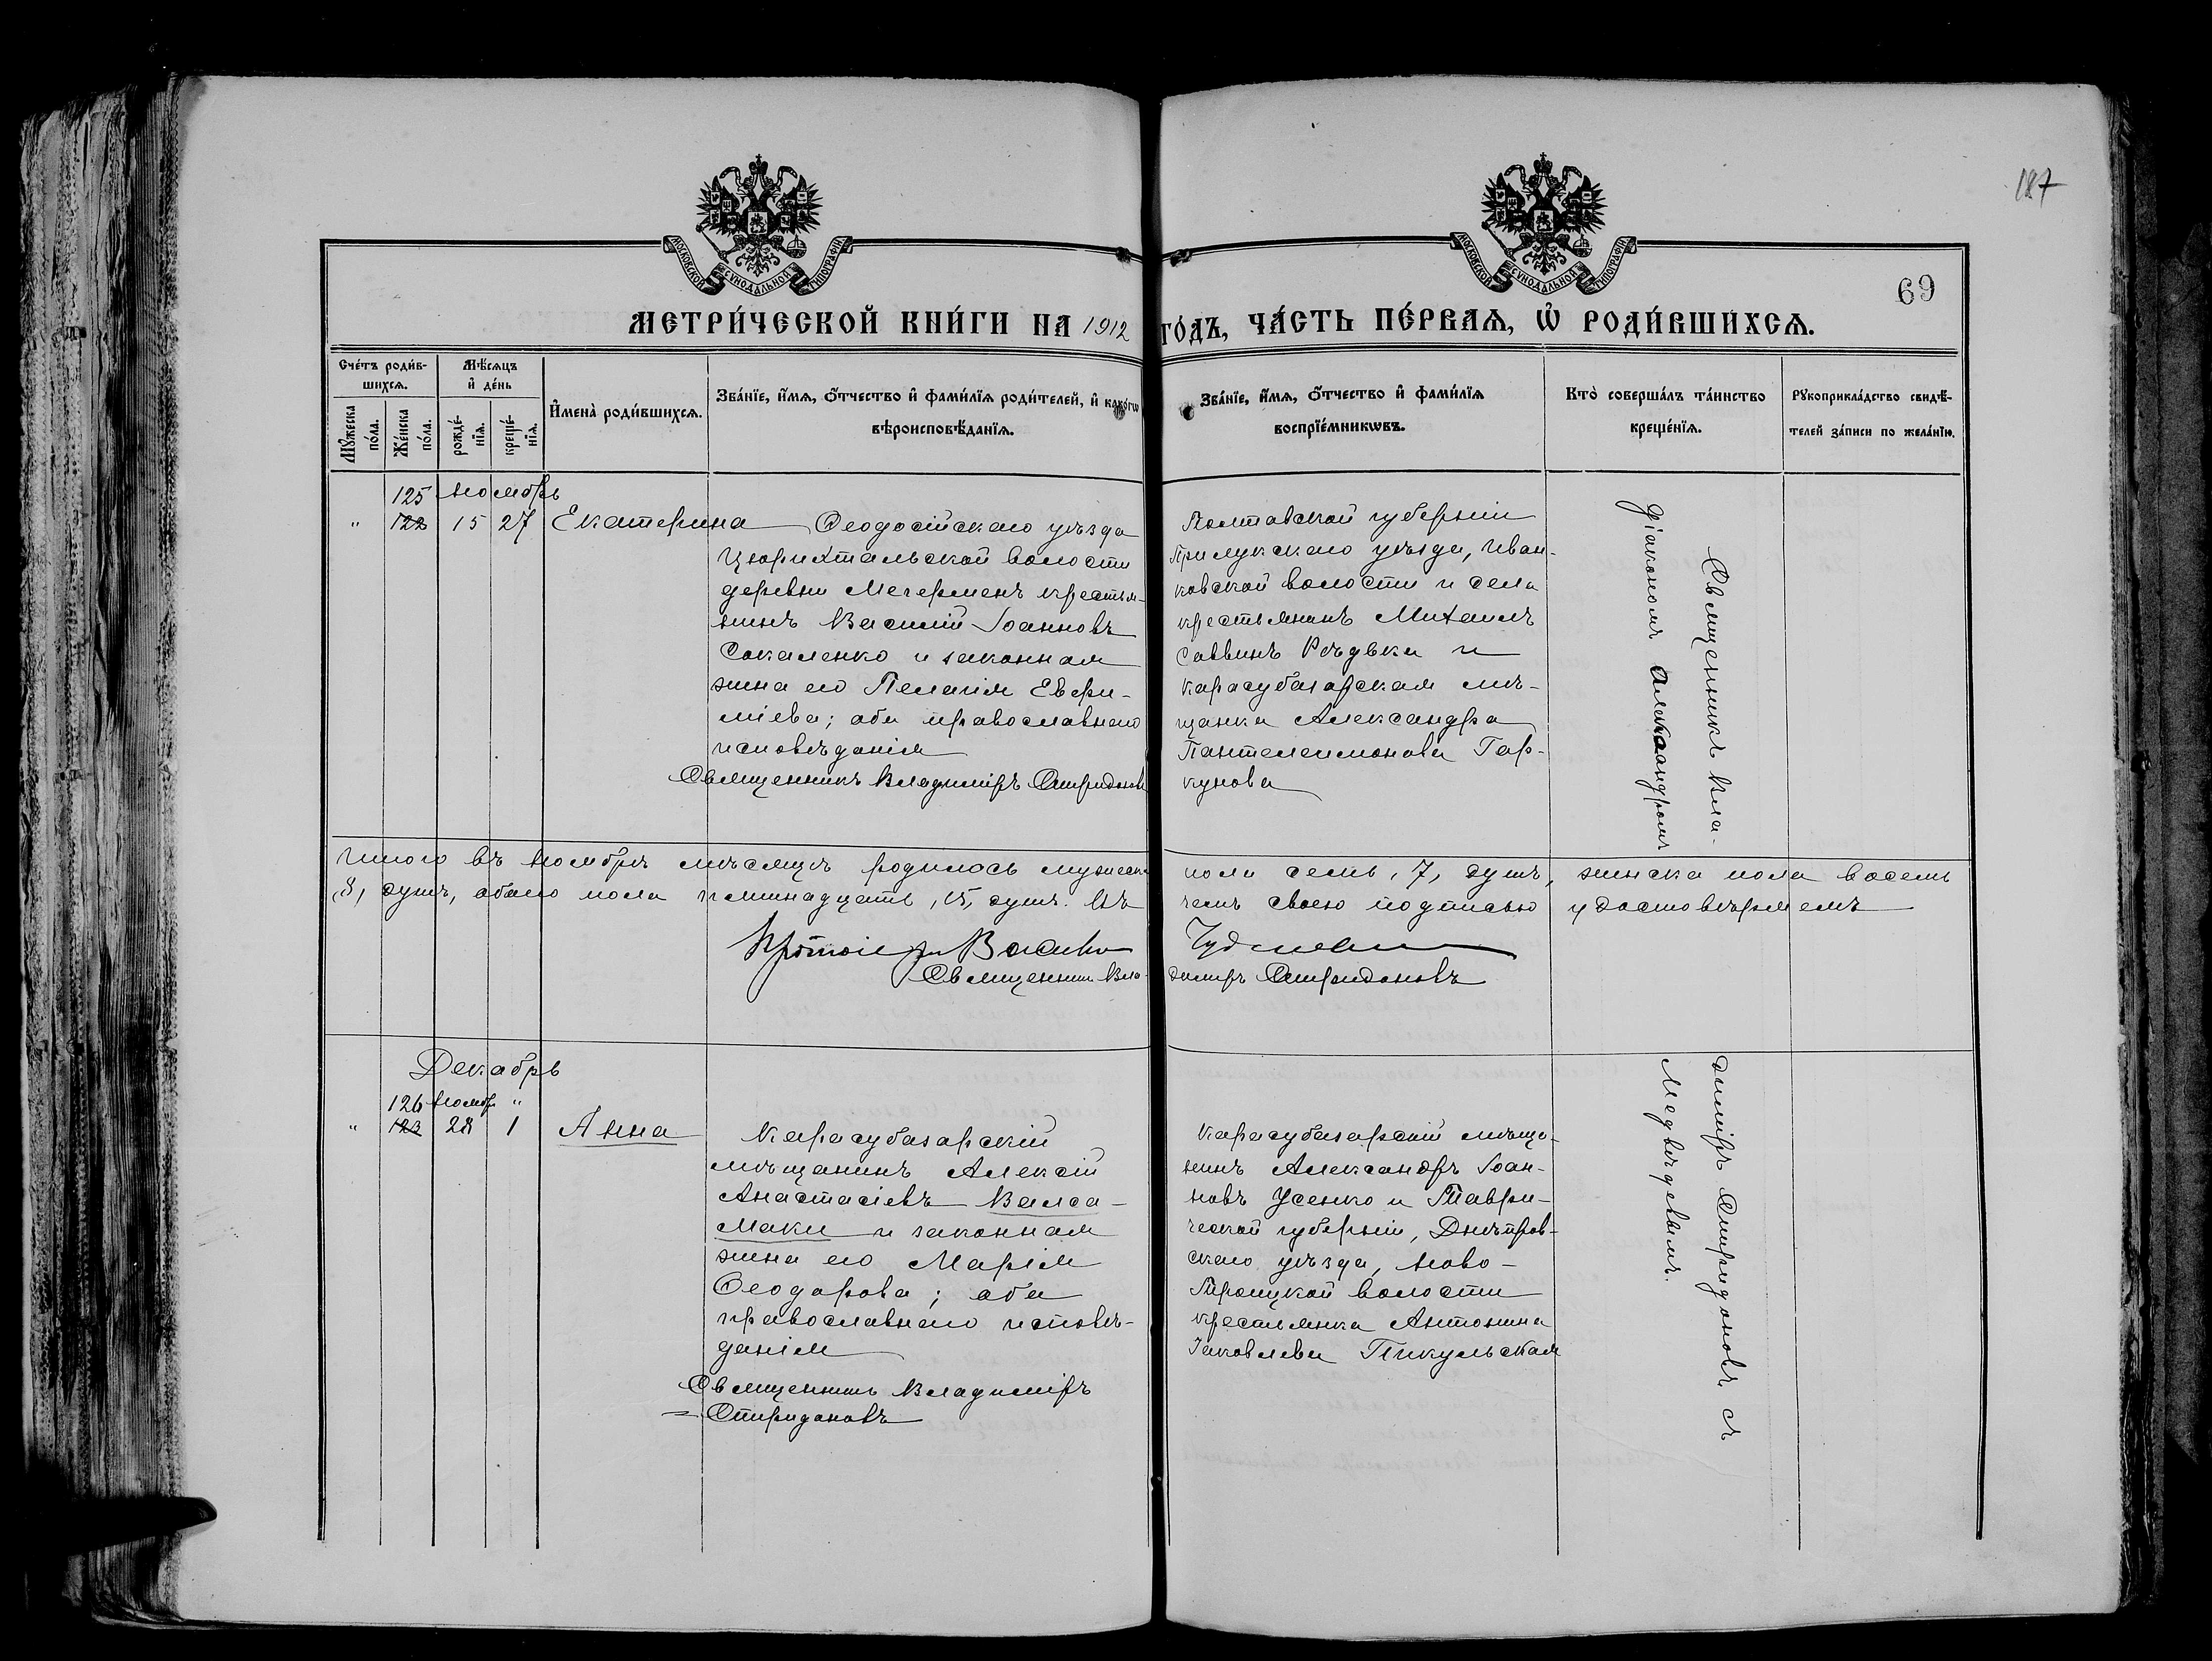 187
69
МОСКОВСКОЙ СѴНОДАЛЬНОЙ ТИПОГРАФІИ
МОСКОВСКОЙ СѴНОДАЛЬНОЙ ТИПОГРАФІИ
МЕТРИ́ЧЕСКОЙ КНИ́ГИ НА 1912 ГО́ДЪ, ЧА́СТЬ ПЕ́РВАѦ, Ѡ҆ РОДИ́ВШИХСѦ.
Сче́тъ роди́в-
шихсѧ.
Мѣ́сѧцъ
и҆ де́нь
Мꙋ́жеска
по́ла.
Же́нска
по́ла.
рожде́-
нїѧ.
креще́-
нїѧ.
И҆мена̀ роди́вшихсѧ.
Зва́нїе, и҆́мѧ, ѻ҆́тчество и҆ фами́лїѧ роди́телей, и҆ како́гѡ
вѣроисповѣ́данїѧ.
Зва́нїе, и҆́мѧ, ѻ҆́тчество и҆ фами́лїѧ
воспрїе́мникѡвъ.
Кто̀ соверша́лъ та́инство
креще́нїѧ.
Рꙋкоприкла́дство свидѣ́-
телей за́писи по жела́нїю.
125 Ноябрь
" 122 15 27 Екатерина
Ѳеодосійскаго уѣзда
Цюрихтальской волости
деревни Мегерменъ крестья-
нинъ Василій Іоанновъ
Сокаленко и законная
жена его Пелагія Евфи-
міева; оба православнаго
исповѣданія
Священникъ Владиміръ Спиридоновъ
Полтавской губерніи
Прилукскаго уѣзда, Иван-
ковской волости и села
крестьянинъ Михаилъ
Саввинъ Рѣдька и
Карасубазарская мѣ-
щанка Александра
Пантелеимонова Гор-
кунова
Священникъ Вла-
діакономъ Александромъ
Итого въ Ноябрѣ мѣсяцѣ родилось мужеска пола семь, 7, душъ, женска пола восемь
,8, душъ, обоего пола пятнадцать, 15, душъ. Въ чемъ своею подписью удостовѣряемъ
Протоіерей Василій
Священникъ Вла-димиръ Спиридоновъ
Декабрь
126 Ноябр. "
" 123 28 1 Анна
Карасубазарскій
мѣщанинъ Алексій
Анастасіевъ Валса-
маки и законная
жена его Марія
Ѳеодорова; оба
православнаго исповѣ-
данія
Священникъ Владиміръ
= Спиридоновъ
Карасубазарскій мѣща-
нинъ Александръ Іоан-
новъ Усенко и Таври-
ческой губерніи, Днѣпров-
скаго уѣзда, Ново-
Троицкой волости
крестьянка Антонина
Іаковлева Пикульская
диміръ Спиридоновъ съ
Медвѣдевымъ.